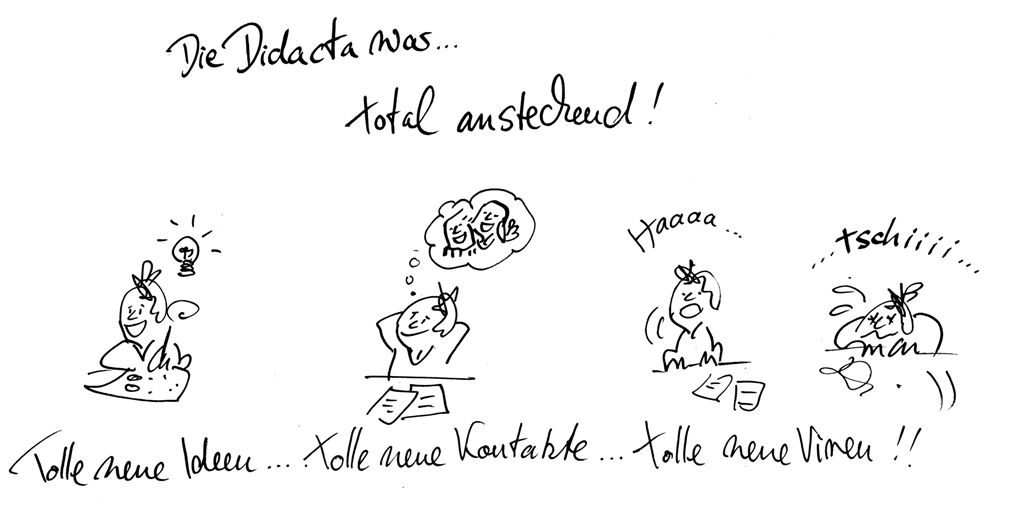 Die Didacta war...
total ansteckend!
Haaaa...
...tschiiii...
Tolle neue Ideen... tolle neue Kontakte... tolle neue Viren!!